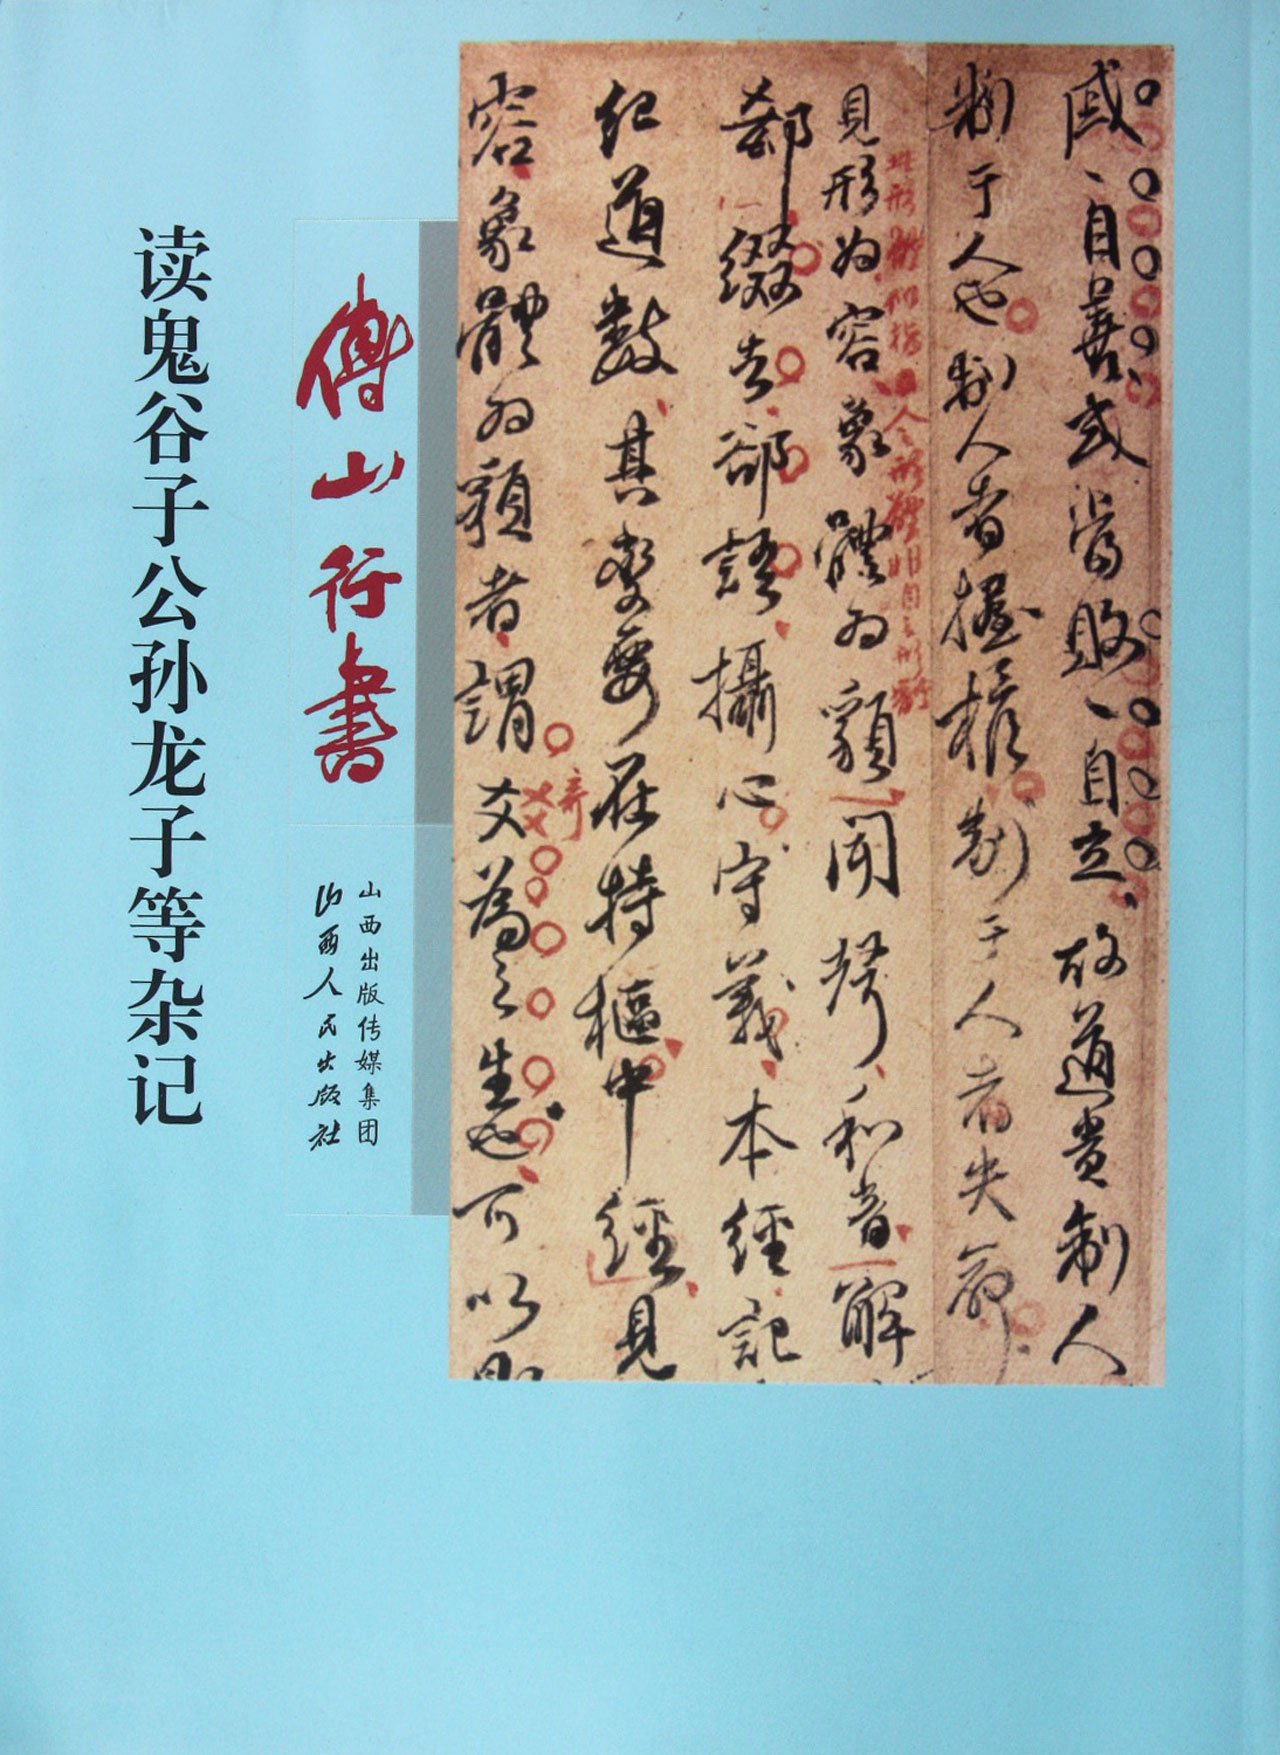 戚丶自善或當敗丶自立故道貴制人
制于人也制人者握權制于人者失命
見形为容象體为䫉聞聲和音解
郄綴去卻語攝心守義本經記
紀道數其變要在持樞中經見
容象體为䫉者謂爻為之生也可以
傅山行書
山西出版传媒集团
山西人民出版社
读鬼谷子公孙龙子等杂记